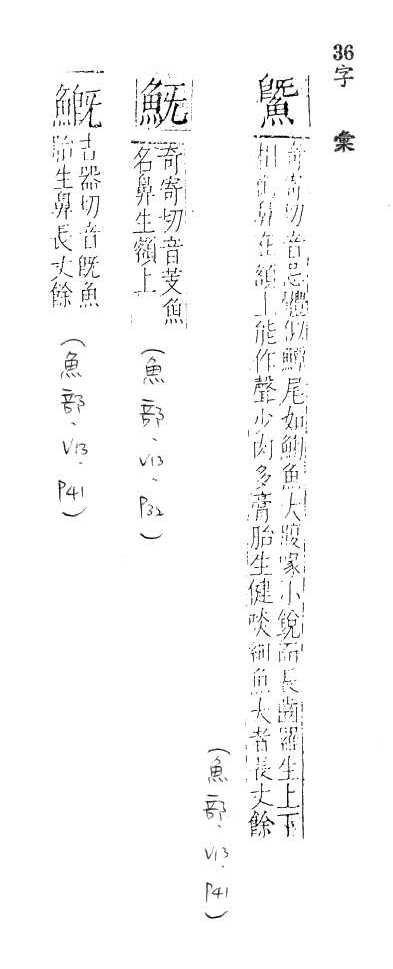 36字 彙
鱀
奇寄切音忌體似鱏尾如䱐魚大腹喙小銳而長齒羅生上下
相銜鼻在額上能作聲少肉多膏胎生健啖細魚大者長丈餘
(魚部、V13、P41)
奇寄切音芰魚
名鼻生額上
(魚部、V13、P32)
吉器切音旣魚
胎生鼻長丈餘
(魚部、V13、P41)